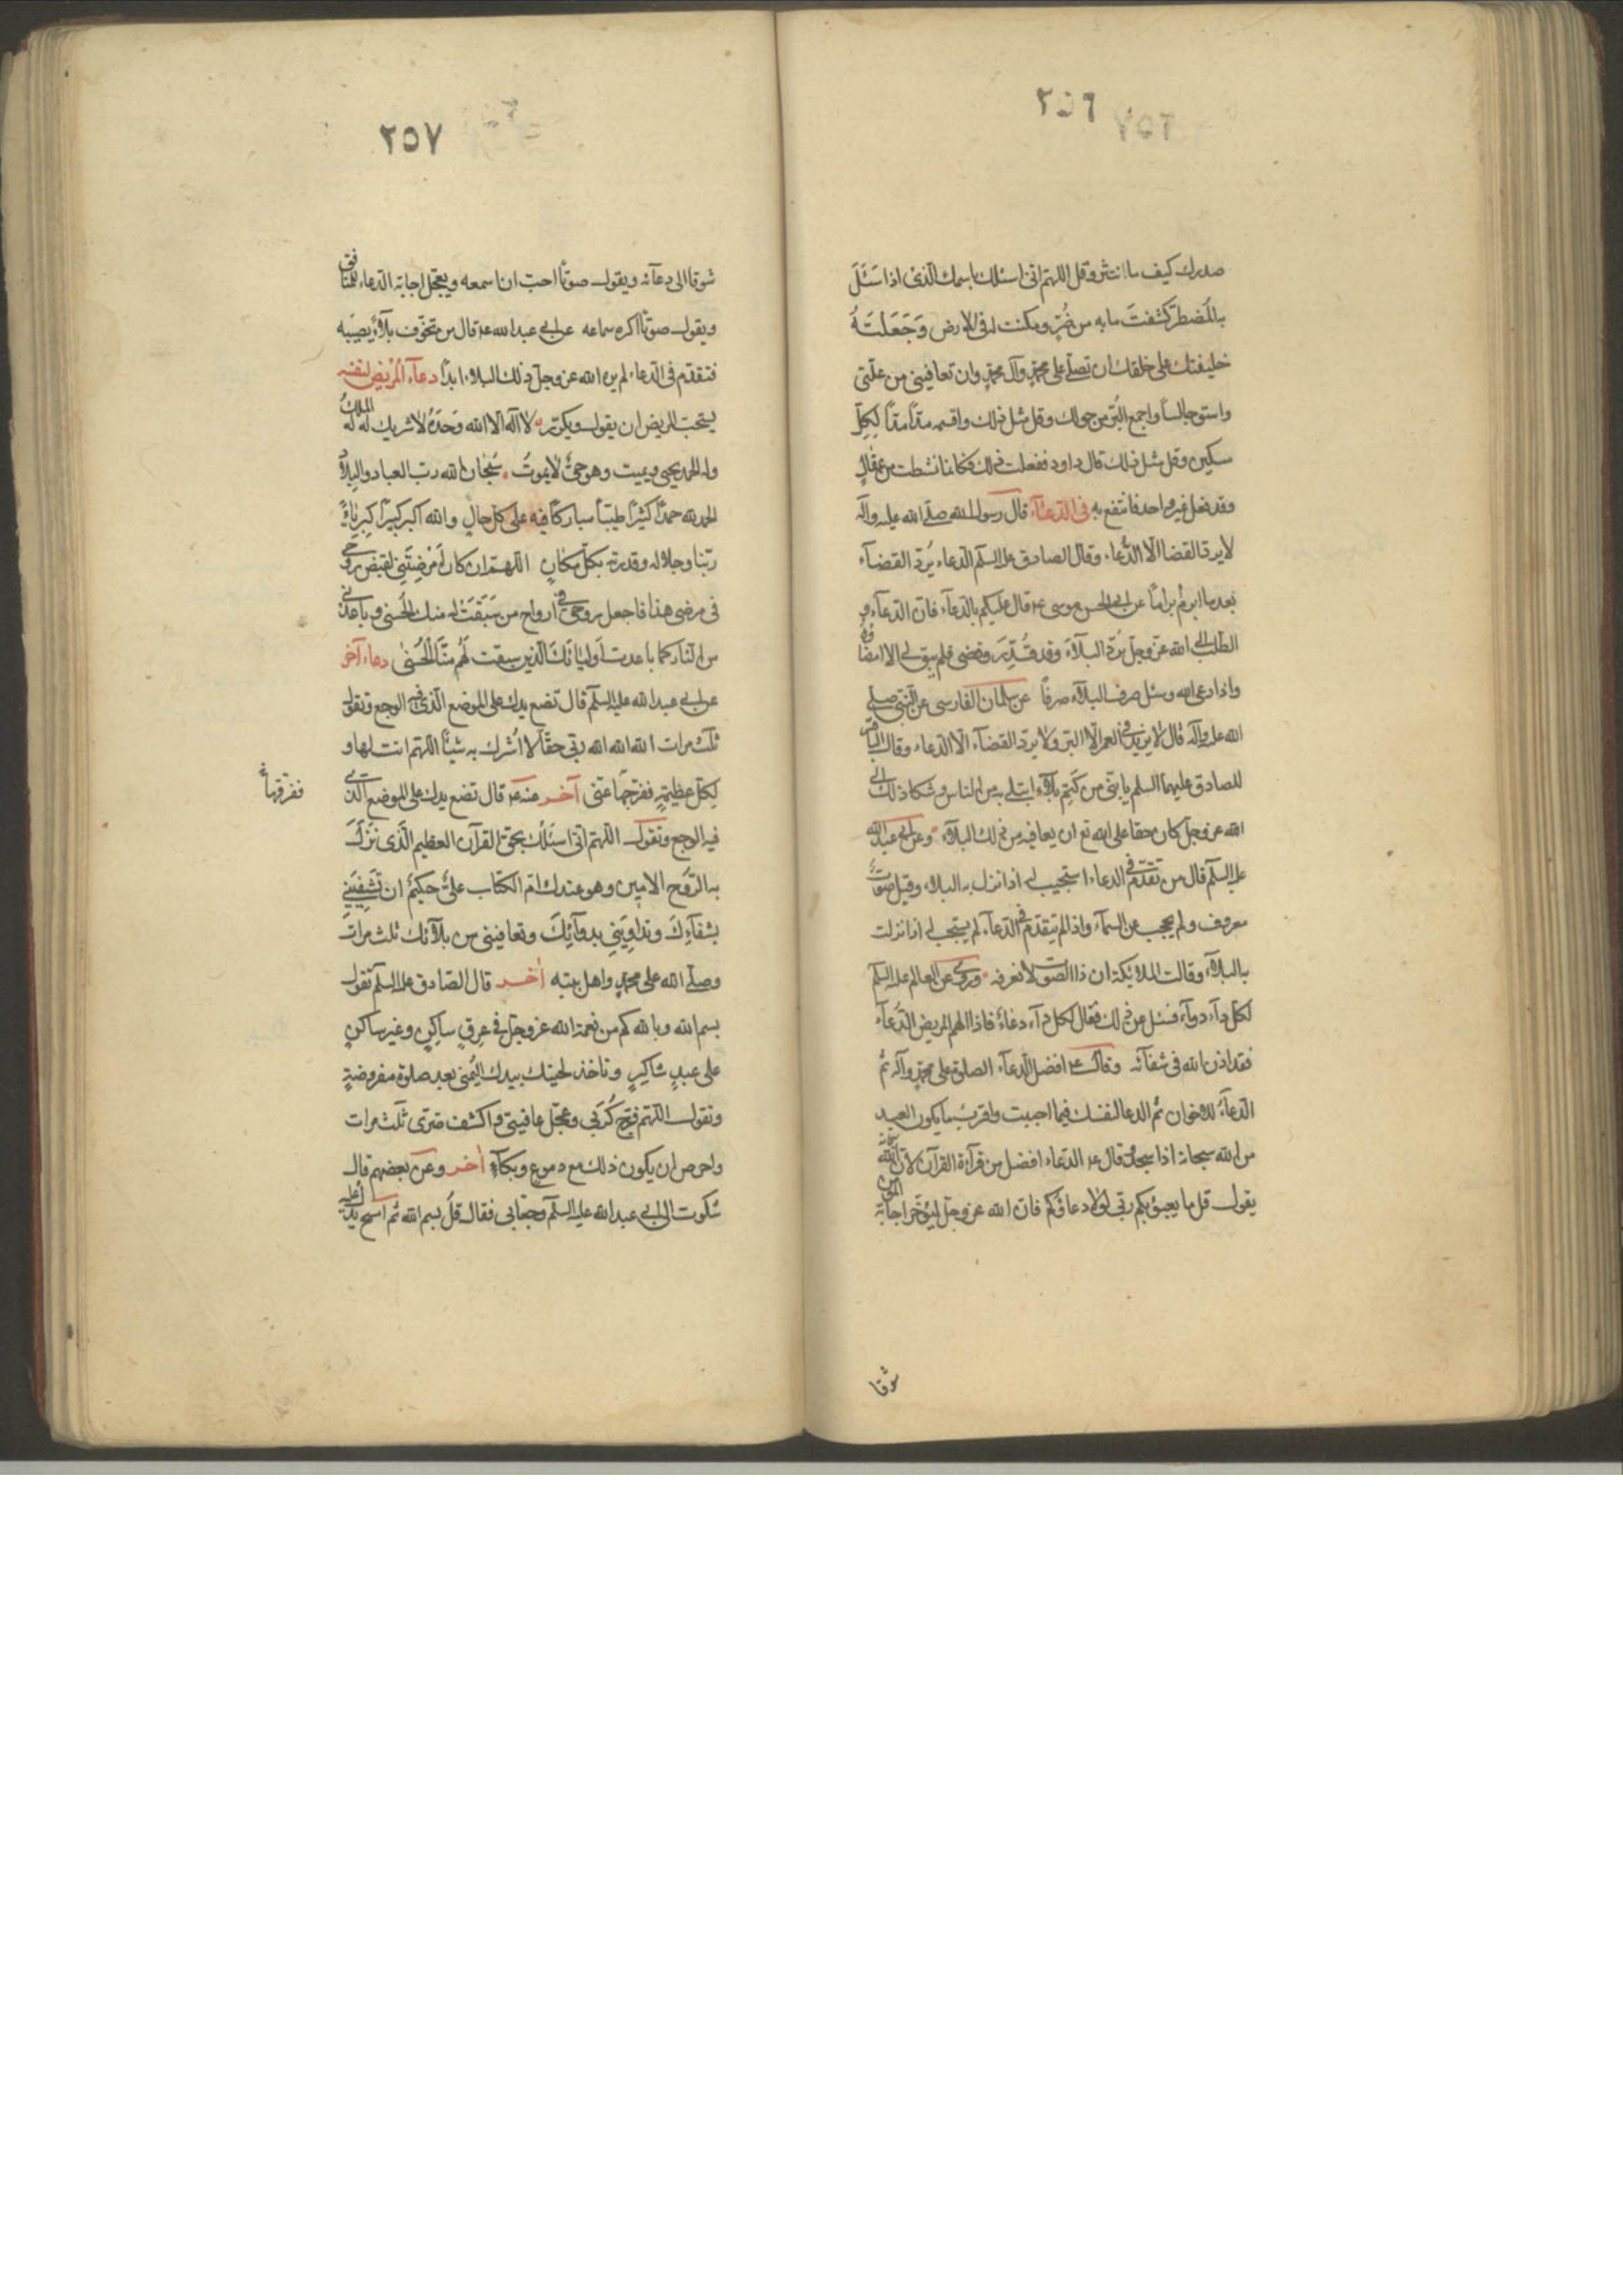 ٢٥٦
صدرك كيف ما انتثر وقل اللهم انى اسئلك باسمك الذى اذا سَئَلَكَ
به المُضطر كشفتَ ما به من ضُرٍّ ومكنت له فى الارض وَجَعَلتَهُ
خليفتك على خلقك ان تصلّى على محمّدٍ وآل محمّدٍ وان تعافينى من علّتى
واستو جالساً واجمع البُرّ من حولك وقل مثل ذلك واقسمه مدّاً مدّاً لِكلِّ
مسكينٍ وقل مثل ذلك قال داود ففعلت ذلك فكانما نشطت من عقالٍ
وقد فعل غير واحد فانتفع به فى الدّعآء قال رسول الله صلّى الله عليه وآله
لا يرد القضا الّا الدُّعاء وقال الصادق عليه السلم الدعاء يُردّ القضآء
بعد ما ابرم ابراماً عن ابى الحسن موسى ع‍ قال عليكم بالدعآء فان الدّعآء و
الطلب الى الله عزّ وجلّ يُردّ البلآءَ وقد قُدِّرَ وقضى فلم يبق له الا امضاؤه
واذا دعى الله وسئل صرف البلآء صرفاً عن سلمان الفارسى عن النّبى صلى
الله عليه وآله قال لا يزيد فى العمر الّا البرّ ولا يردّ القضآء الّا الدعاء وقال الباقر
للصادق عليهما السلم يا بنىّ من كتم بلآءً ابتلى به من الناس وشكا ذلك الى
الله عز وجلّ كان حقا على الله تع ان يعافيه من ذلك البلآء وعن ابى عبد الله
عليه السلم قال من تقدّم فى الدعاء استجيب له اذا نزل به البلاء وقيل صوتٌ
معروف ولم يحجب عن السمآء واذا لم يتقدّم فى الدّعآء لم يستجب له اذا نزلت
به البلآء وقالت الملائيكة ان ذا الصوت لا نعرفه وروى عن العالم عليه السلم
لكل دآء دوآء فسئل عن ذلك فقال لكل دآء دعاءٌ فاذا الهم المريض الدّعآء
فقد اذن الله فى شفآئه وقال ع‍ افضل الدعاء الصلوة على محمّدٍ وآله ثم
الدّعآءُ للاخوان ثم الدعا لنفسك فيما احببت واقرب ما يكون العبد
من الله سبحانه اذا سجد وقال ع‍ الدعاء افضل من قرآءة القرآن لانّ الله
يقول قل ما يعبؤ بكم ربّى لولا دعاؤكم فان الله عز وجلّ ليؤخر اجابة المؤمن
شوقا
٢٥٧
شوقا الى دعآئه ويقول صوتًا احبّ ان اسمعه ويعجّل اجابة الدّعاء للمنافق
ويقول صوتًا اكره سماعه عن ابى عبد الله ع‍ قال من تخوّف بلآءً يُصيبه
فتقدّم فى الدّعاء لم يره الله عز وجلّ ذلك البلاء ابداً دعآء المريض لنفسه
يستحبّ للمريض ان يقول ويكرّر لا اله الّا الله وَحدَهُ لا شريك له له الملكُ
وله الحمد يحيى ويميت وهو حىٌّ لا يموتُ سُبحان الله ربّ العباد والبلاد
الحمد لله حمدًا كثيرًا طيّبًا مباركًا فيه على كلّ حالٍ والله اكبر كبيرًا كبرياءُ
ربّنا وجلاله وقدرته بكلّ مكانٍ اللهمّ ان كان اَمرَضتَنى لقبض روحى
فى مرضى هذا فاجعل روحى فى ارواح من سَبَقَت له منك الحُسنى وباعدنى
من النار كما باعدت اَوليائكَ الذين سبقت لهُم منّا الحُسنى دعاء آخر
عن ابى عبد الله عليه السلم قال تضع يدك على الموضع الّذى فيه الوجع وتقول
ثلث مرات الله الله الله ربّى حقّا لا اُشرك به شيئًا اللهم انت لها و
لكلّ عظيمةٍ ففرّجها عنّى آخر عنه ع‍ قال تضع يدك على الموضع الذى
ففرّقها خ
فيه الوجع وتقول اللهم انى اسئلك بحقّ القرآن العظيم الّذى نَزَلَ
به الرّوح الامين وهو عندك فى امّ الكتاب علىٌّ حكيمٌ ان تَشفِيَنى
بشفآءِكَ وتداوِيَنى بدوآئِكَ وتعافينى من بلآئك ثلث مراتٍ
وصلّى الله على محمدٍ واهل بيته اٰخر قال الصّادق عليه السلم تقول
بسم الله وبالله كم من نعمة الله عز وجلّ فى عِرقٍ ساكِنٍ وغير ساكنٍ
على عبدٍ شاكرٍ وتاخذ لحيتك بيدك اليُمنى بعد صلوة مفروضةٍ
وتقول اللهم فرّج كُربَتى وعجّل عافيتى واكشف ضرّى ثلث مرات
واحرص ان يكون ذلك مع دموعٍ وبكآءٍ اٰخر وعن بعضهم قال
شكوت الى ابى عبد الله عليه السلم وجعًا بى فقال قُل بسم الله ثم امسح يدك عليه